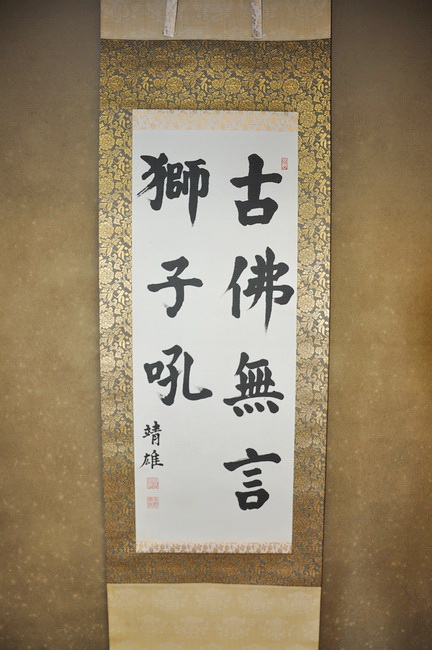 古佛無言
獅子吼
靖雄